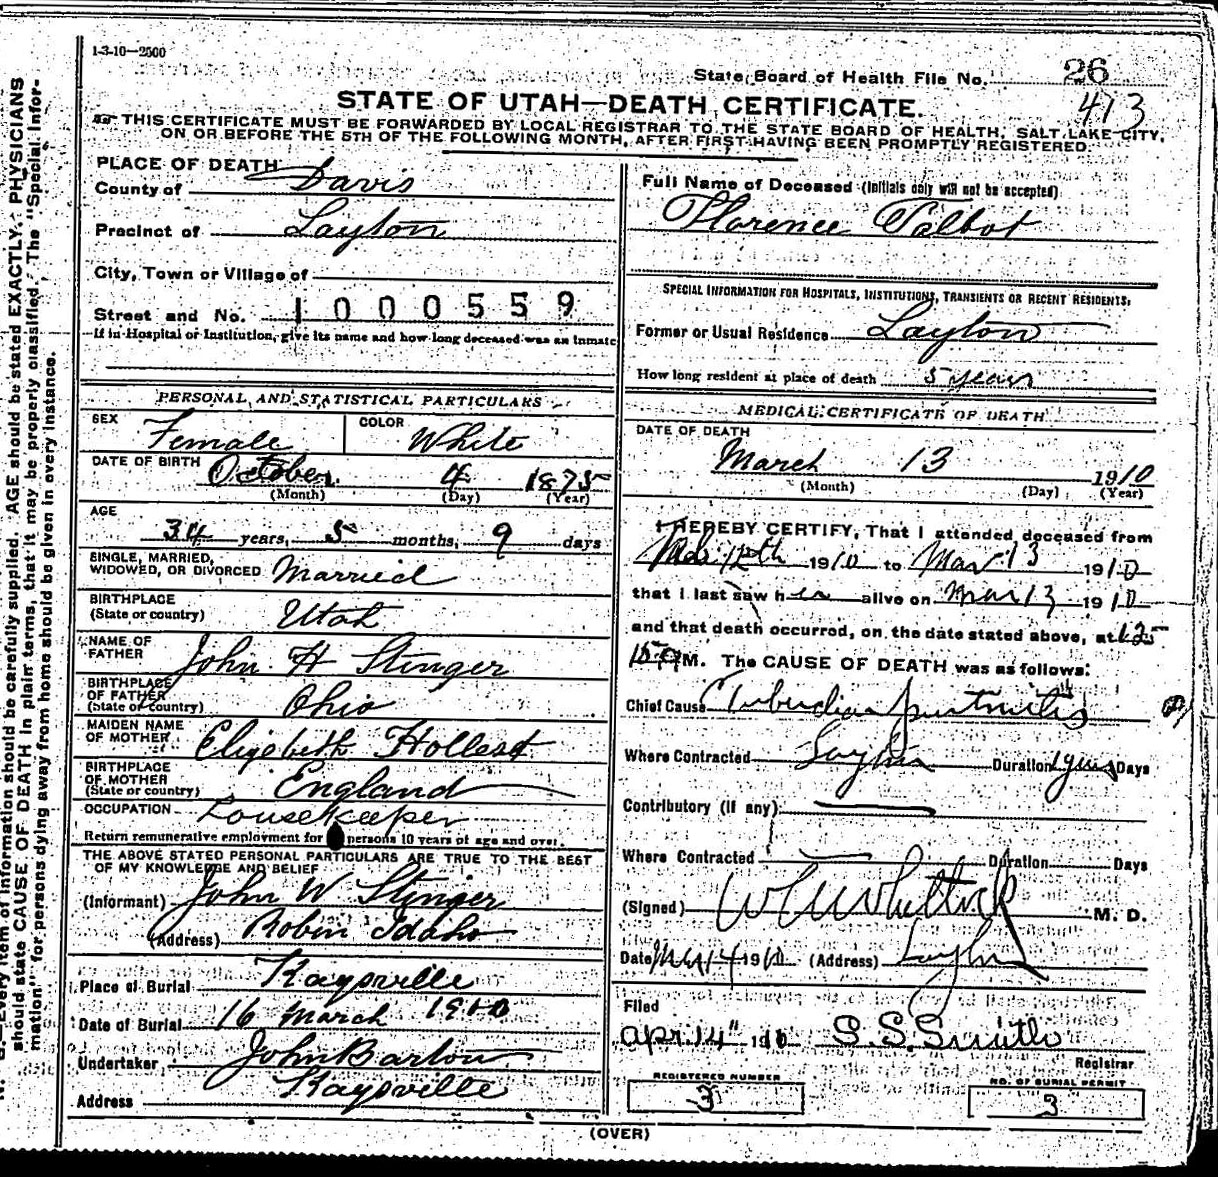 1-3-10—2500
State Board of Health File No. 26
413
STATE OF UTAH—DEATH CERTIFICATE.
THIS CERTIFICATE MUST BE FORWARDED BY LOCAL REGISTRAR TO THE STATE BOARD OF HEALTH, SALT LAKE CITY,
ON OR BEFORE THE 5TH OF THE FOLLOWING MONTH, AFTER FIRST HAVING BEEN PROMPTLY REGISTERED.
PLACE OF DEATH
County of Davis
Precinct of Layton
City, Town or Village of
Street and No. 1000559
If in Hospital or Institution, give its name and how long deceased was an inmate
PERSONAL AND STATISTICAL PARTICULARS
SEX Female COLOR White
DATE OF BIRTH October 4 1875
(Month) (Day) (Year)
AGE
34 years, 5 months, 9 days
SINGLE, MARRIED,
WIDOWED, OR DIVORCED Married
BIRTHPLACE
(State or country) Utah
NAME OF
FATHER John H Stinger
BIRTHPLACE
OF FATHER
(State or country) Ohio
MAIDEN NAME
OF MOTHER Elizebeth Hollest
BIRTHPLACE
OF MOTHER
(State or country) England
OCCUPATION Housekeeper
Return remunerative employment for persons 10 years of age and over.
THE ABOVE STATED PERSONAL PARTICULARS ARE TRUE TO THE BEST
OF MY KNOWLEDGE AND BELIEF
(Informant) John W Stinger
(Address) Robin Idaho
Place of Burial Kaysville
Date of Burial 16 March 1910
Undertaker John Barton
Address Kaysville
Full Name of Deceased (Initials only will not be accepted)
Florence Talbot
SPECIAL INFORMATION FOR HOSPITALS, INSTITUTIONS, TRANSIENTS OR RECENT RESIDENTS:
Former or Usual Residence Layton
How long resident at place of death 5 years
MEDICAL CERTIFICATE OF DEATH
DATE OF DEATH
March 13 1910
(Month) (Day) (Year)
I HEREBY CERTIFY, That I attended deceased from
12th 1910 to Mar 13 1910
that I last saw her alive on Mar 13 1910
and that death occurred, on the date stated above, at
M. The CAUSE OF DEATH was as follows:
Chief Cause Tubercular peritonitis
Where Contracted Layton Duration Days
Contributory (if any)
Where Contracted Duration Days
(Signed) M. D.
Date Mar 14 1910 (Address) Layton
Filed
Apr. 14" 1910 S.S. Smith
Registrar
REGISTERED NUMBER
3
NO. OF BURIAL PERMIT
3
(OVER)
Every item of information should be carefully supplied. AGE should be stated EXACTLY. PHYSICIANS
should state CAUSE OF DEATH in plain terms, that it may be properly classified. The "Special Infor-
mation" for persons dying away from home should be given in every instance.